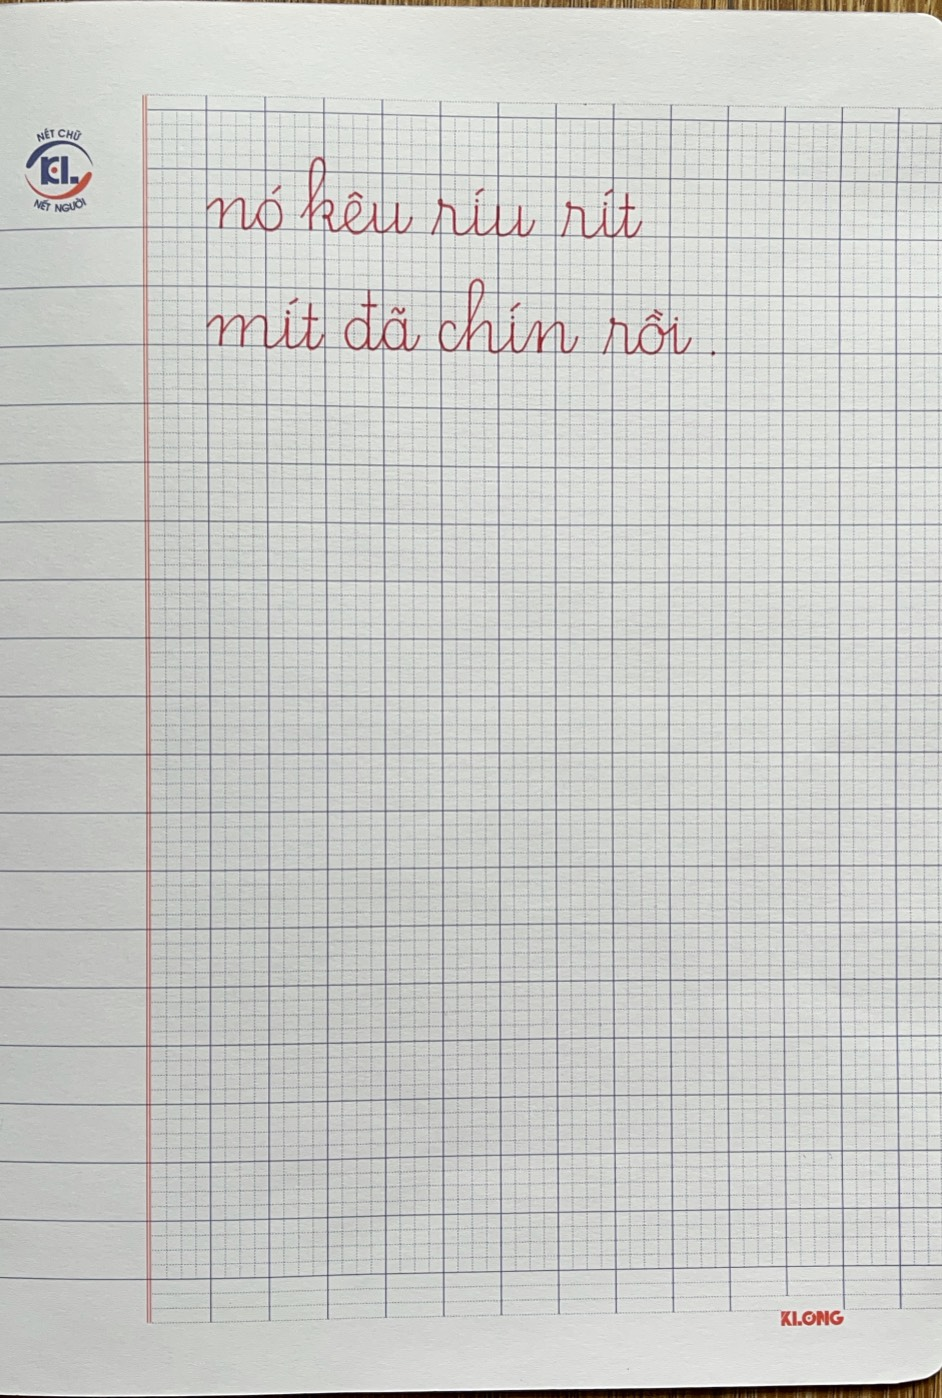 NÉT CHỮ
KL
NẾT NGƯỜI
nó kêu ríu rít
mít đã chín rồi.
KLONG